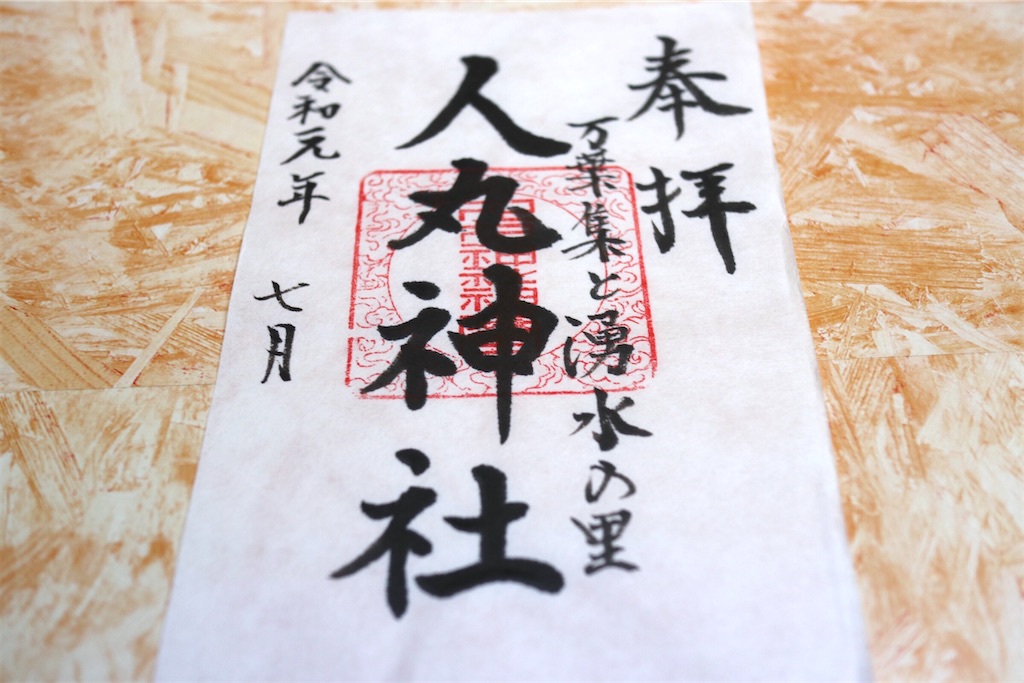 奉拝
万葉集と湧水の里
人丸神社
令和元年 七月